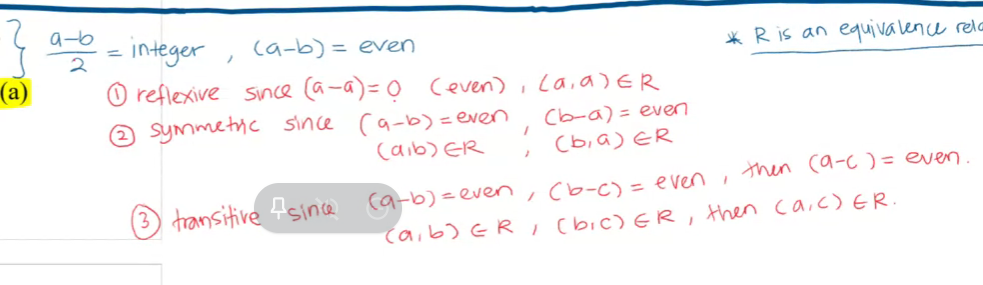 } a-b/2 = integer , (a-b) = even
* R is an equivalence rela
(a)
① reflexive since (a-a)=0 (even) , (a,a) ∈ R
② symmetric since (a-b)=even , (b-a) = even
(a,b) ∈R , (b,a) ∈R
③ transitive since (a-b)=even , (b-c) = even , then (a-c) = even.
(a,b) ∈ R , (b,c) ∈ R , then (a,c) ∈ R.